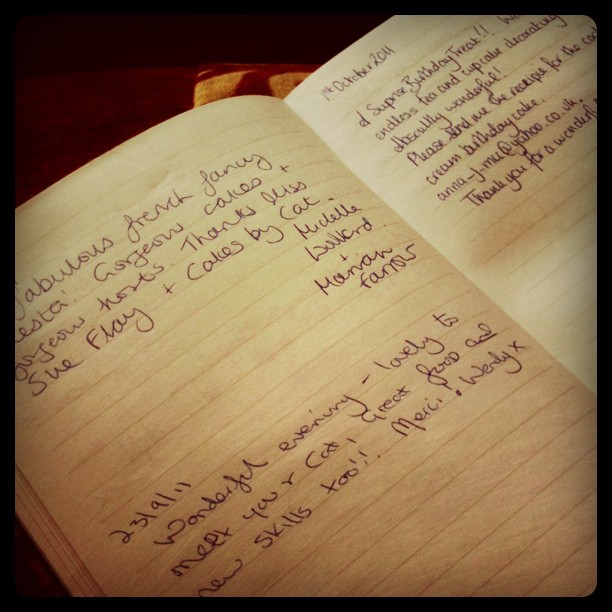 Fabulous french fancy
Gorgeous cakes +
gorgeous hosts. Thanks Miss
Sue Flay + Cakes by Cat.
Michelle
+
Marian
Farrow
23/9/11
Wonderful evening - lovely to
meet you & Cat, Great food and
new skills too!! Merci! Wendy x
1st October 2011
A Suprise Birthday Treat!!
endless tea and cupcake decorating
absoultly wonderful!
Please send me the receipt for the
cream birthday cake.
anna-j-mc@yahoo.co.uk
Thank you for a wonderful